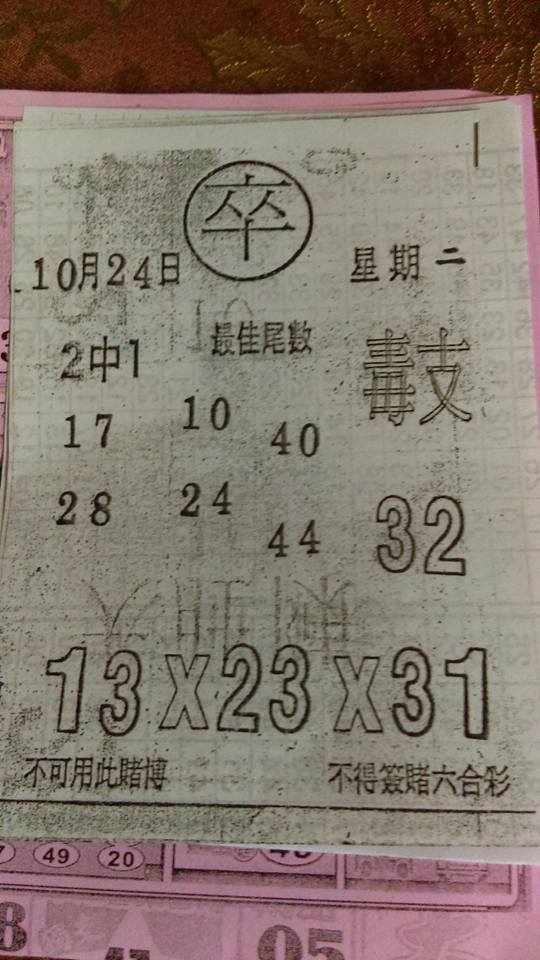 卒
10月24日
星期二
2中1
最佳尾數
毒支
17
10
40
28
24
44
32
13X23X31
不可用此賭博
不得簽賭六合彩
49
20
95